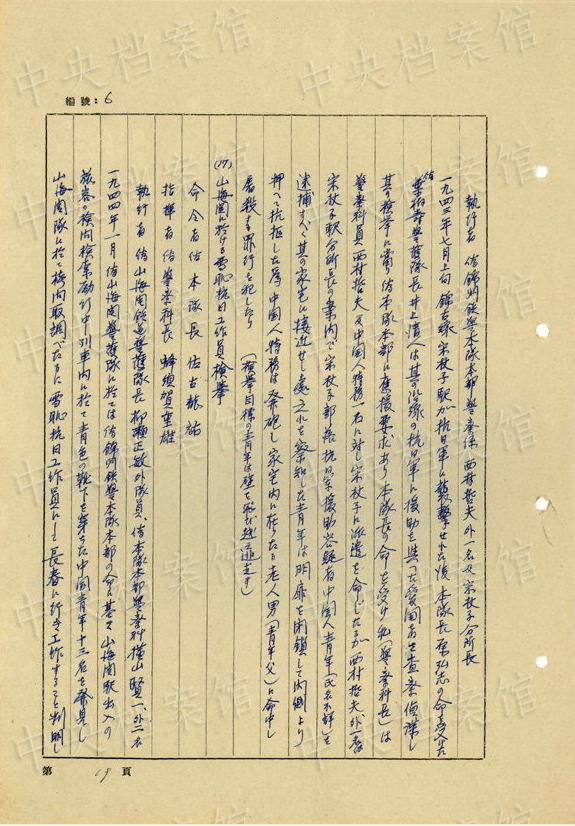 編號：6
執行者 偽錦州鉄警本隊本部警務係 西村哲夫外一名及宋杖子分所長
一九四三年七月上旬錦古線宋杖子駅が抗日軍に襲撃せられた後本隊長原弘志の命を受けた
偽葉柏寿警護隊長井上清人は其の沿線の抗日軍に援助を与った愛国者を査察偵諜し
其の検挙に當り偽本隊本部に應援要求あり本隊長の命を受け私（警務科長）は
警務科員西村哲夫及中国人特務一名に対し宋杖子に派遣を命じたるが西村哲夫外一名は
宋杖子駅分所長の案内で宋杖子部落抗日軍援助容疑者中国人青年（氏名不詳）を
逮捕すべく其の家宅に接近せし處之れを察知した青年は門扉を閉鎖して内側より
押へて抗拒した為中国人特務は發砲し家宅内に在りたる老人男（青年父）に命中し
屠殺する罪行を犯したり （検挙目標の青年は壁を飛び越へ逃走す）
(17) 山海関に於ける雪恥抗日工作員検挙
命令者 偽本隊長 佐古龍祐
指揮者 偽警務科長 蜂須賀重雄
執行者 偽山海関鉄道警護隊長 柳瀬正敏外隊員 偽本隊本部警務科横山賢一、外二名
一九四四年一月偽山海関警護隊に於ては偽錦州鉄警本隊本部の命に基き山海関駅出入の
旅客の検問検索励行中列車内に於て青色の靴下を穿ちた中国青年十三名を發見し
山海関隊に於て拷問取調べたるに雪恥抗日工作員にして長春に行き工作すること判明し
第 19 頁
中央档案馆